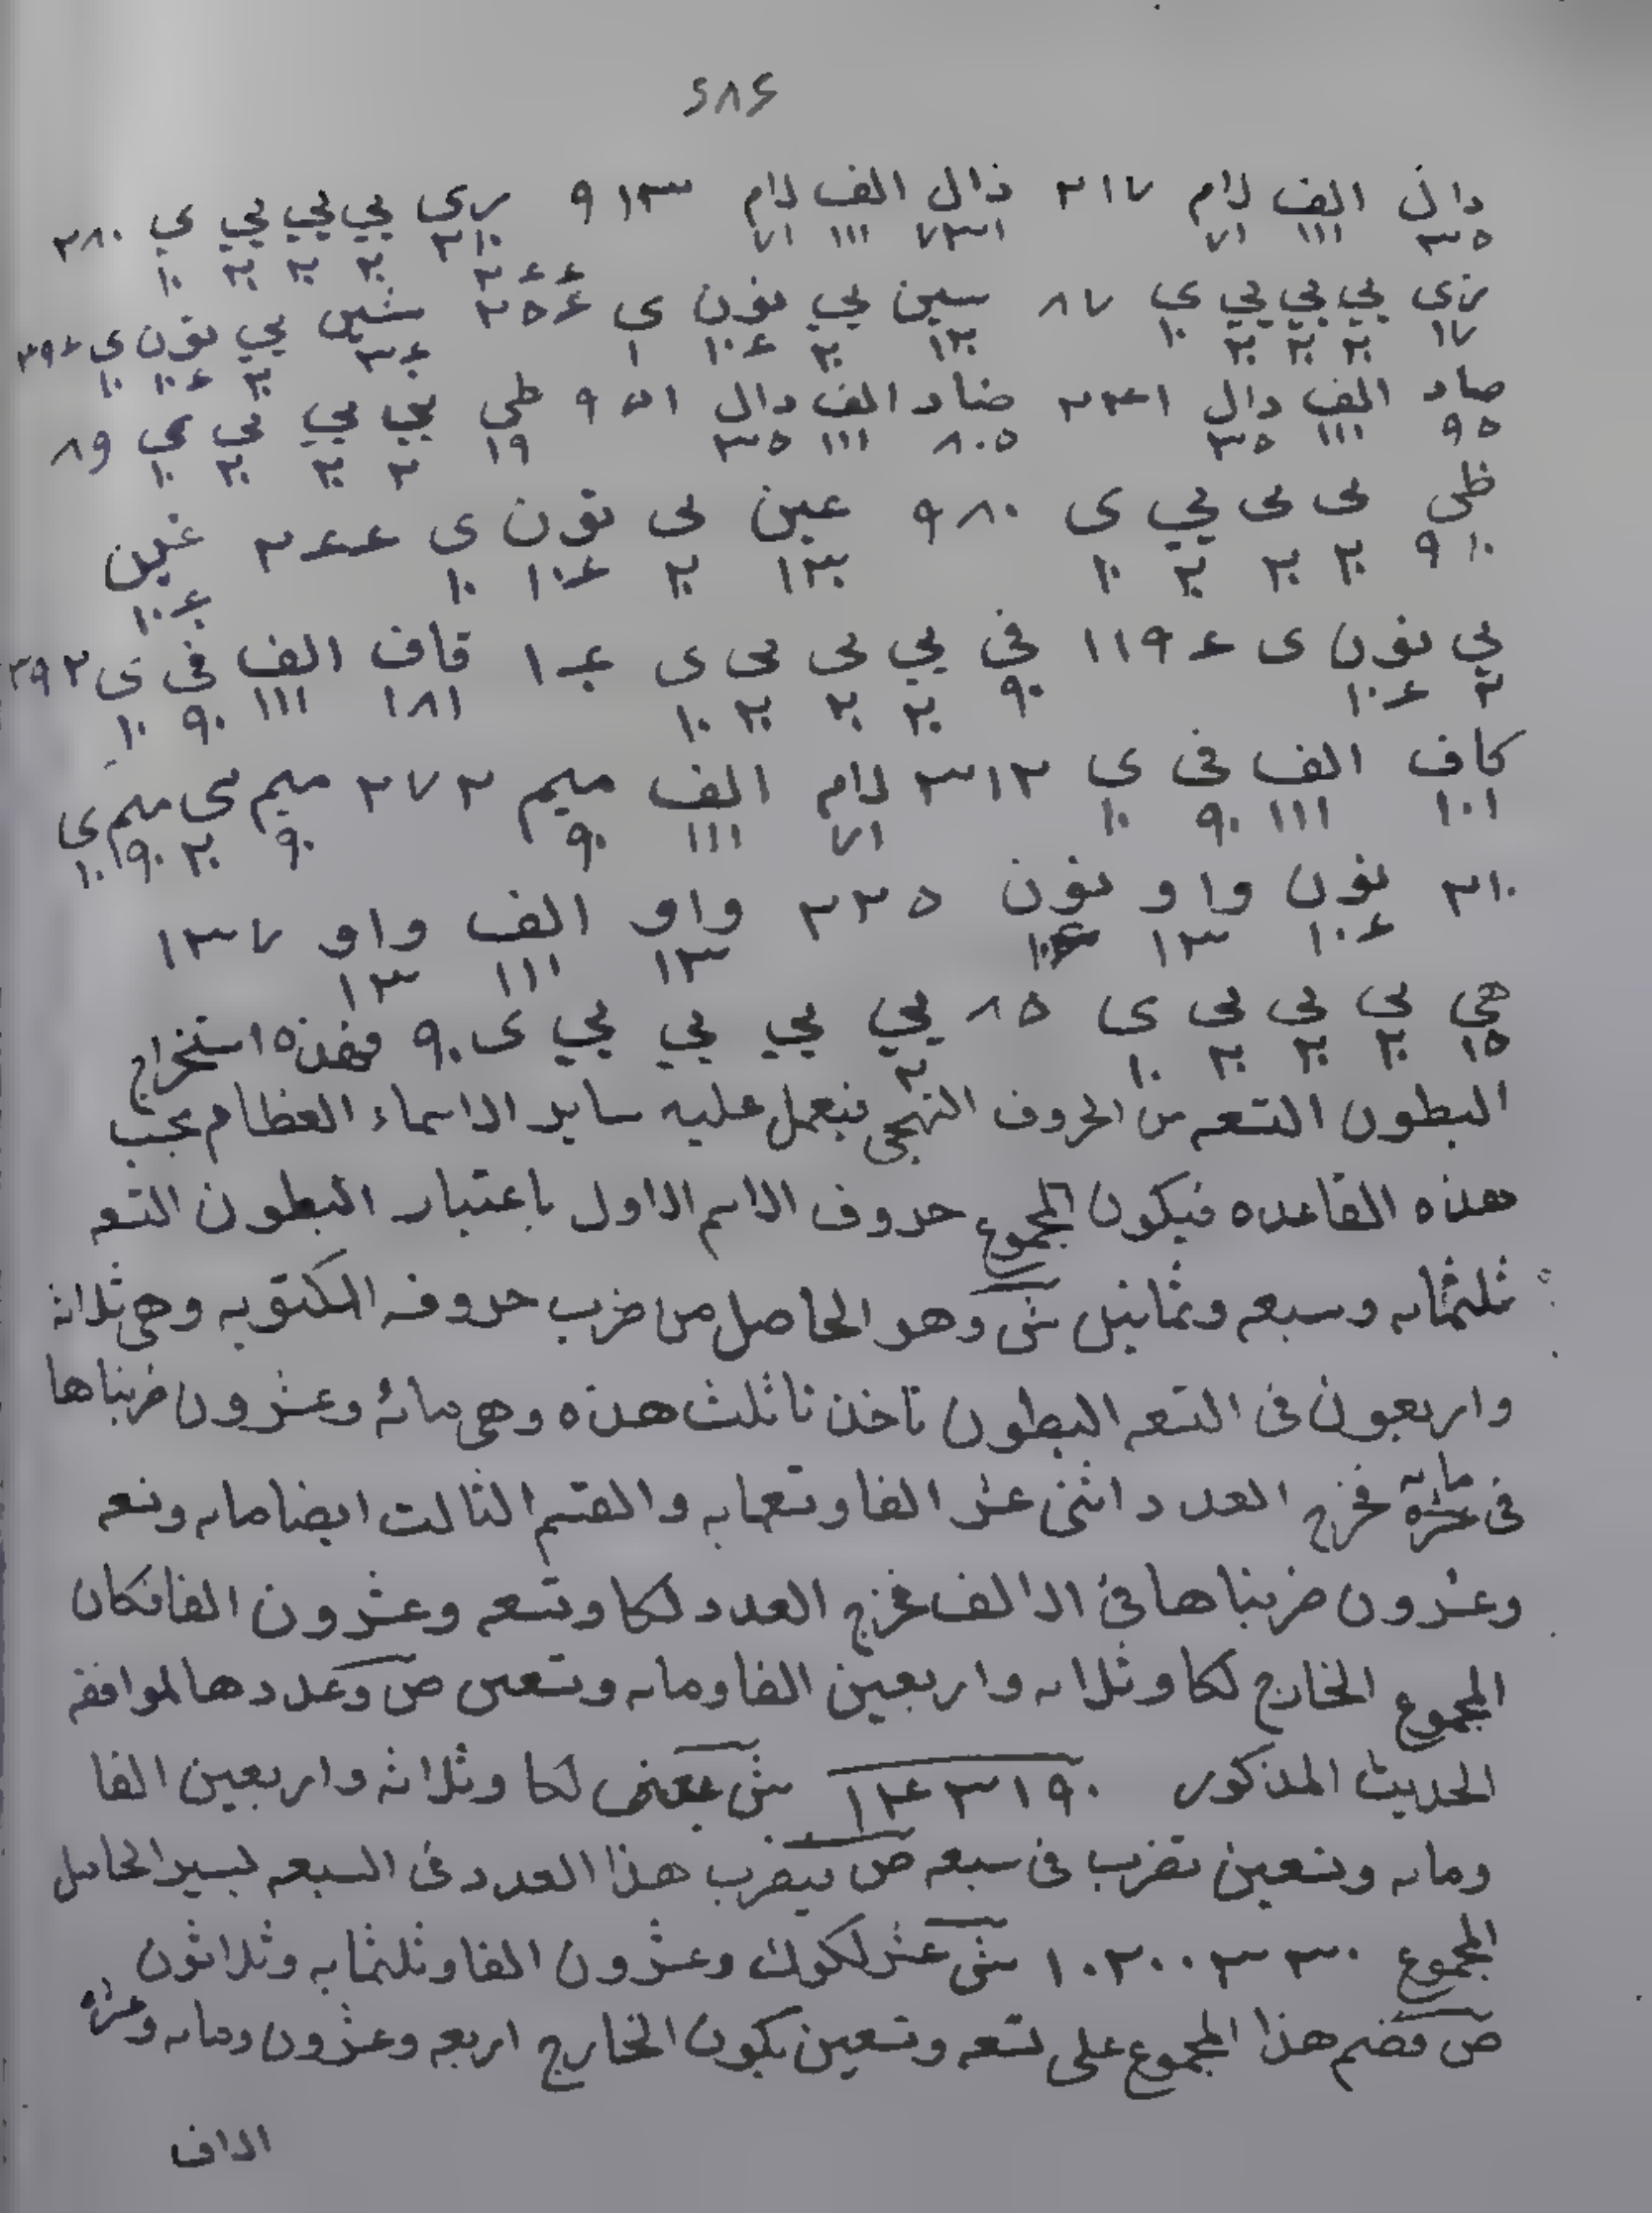 ٤٨٤
دال الف لام ٢١٧ ذال الف لام ٩١٣ ري يي يي يي يي ي ٢٨٠
٣٥ ١١١ ٧١ ٧٣١ ١١١ ٧١ ٢١٠ ٢٠ ٢٠ ٢٠ ١٠
زي يي يي يي ي ٨٧ سين يي نون ي ٢٥٤ شين يي نون ي
١٧ ٢٠ ٢٠ ٢٠ ١٠ ١٢٠ ٢٠ ١٠٦ ١ ٣٦٠ ٢٠ ١٠٦ ١٠
صاد الف دال ٢٤١ ضاد الف دال ٩٥١ طي يي يي يي يي ي ٨٩
٩٥ ١١١ ٣٥ ٨٠٥ ١١١ ٣٥ ١٩ ٢ ٢٠ ٢٠ ١٠
ظي يي يي يي ي ٩٨٠ عين يي نون ي ٢٦٦ غين
٩١٠ ٢٠ ٢٠ ٢٠ ١٠ ١٣٠ ٢٠ ١٠٦ ١٠
يي نون ي ١١٩٦ في يي يي يي ي ١٦٠ قاف الف في ي ٣٩٢
٢ ١٠٦ ٩٠ ٢٠ ٢٠ ٢٠ ١٠ ١٨١ ١١١ ٩٠ ١٠
كاف الف في ي ٣١٢ لام الف ميم ٢٧٢ ميم يي ميم ي
١٠١ ١١١ ٩٠ ١٠ ٧١ ١١١ ٩٠ ٩٠ ٢٠ ٩٠ ١٠
٢١٠ نون واو نون ٢٢٥ واو الف واو ١٣٧
١٠٦ ١٣ ١٣ ١١١ ١٣
هي يي يي يي ي ٨٥ يي يي يي يي ي ٩٠ فهذه استخراج
١٥ ٢٠ ٢٠ ٢٠ ١٠ ٢
البطون التسعه من الحروف التهجي فيعمل عليه ساير الاسماء العظام بحسب
هذه القاعده فيكون المجموع حروف الاسم الاول باعتبار البطون التسعه
ثلثمايه وسبعه وثمانين ش وهو الحاصل من ضرب حروفه المكتوبه وهي ثلاثة
واربعون في التسعه البطون تاخذنا ثلث هذه وهي مائة وعشرون ضربناها
في مايه عشرة فخرج العدد اثنى عشر الفا وتسعمايه والقسم الثالث ايضا مايه وتسعه
وعشرون ضربناها في الالف فخرج العدد لكا وتسعه وعشرون الفا فكان
المجموع الخارج لكا وثلاثه واربعين الفا ومايه وتسعين ص وعددها لموافقه
الحديث المذكور ١٤٣١٩٠ ش بعض لكا وثلاثة واربعين الفا
ومايه وتسعين تضرب في سبعه ص يضرب هذا العدد في السبعه ليسير الحاصل
المجموع ١٠٢٠٠٢٣٣٠ ش عشر لكوك وعشرون الفا وثلثمايه وثلاثون
ص فضم هذا المجموع على تسعه وتسعين يكون الخارج اربعه وعشرون ومايه وعشرة
الاف